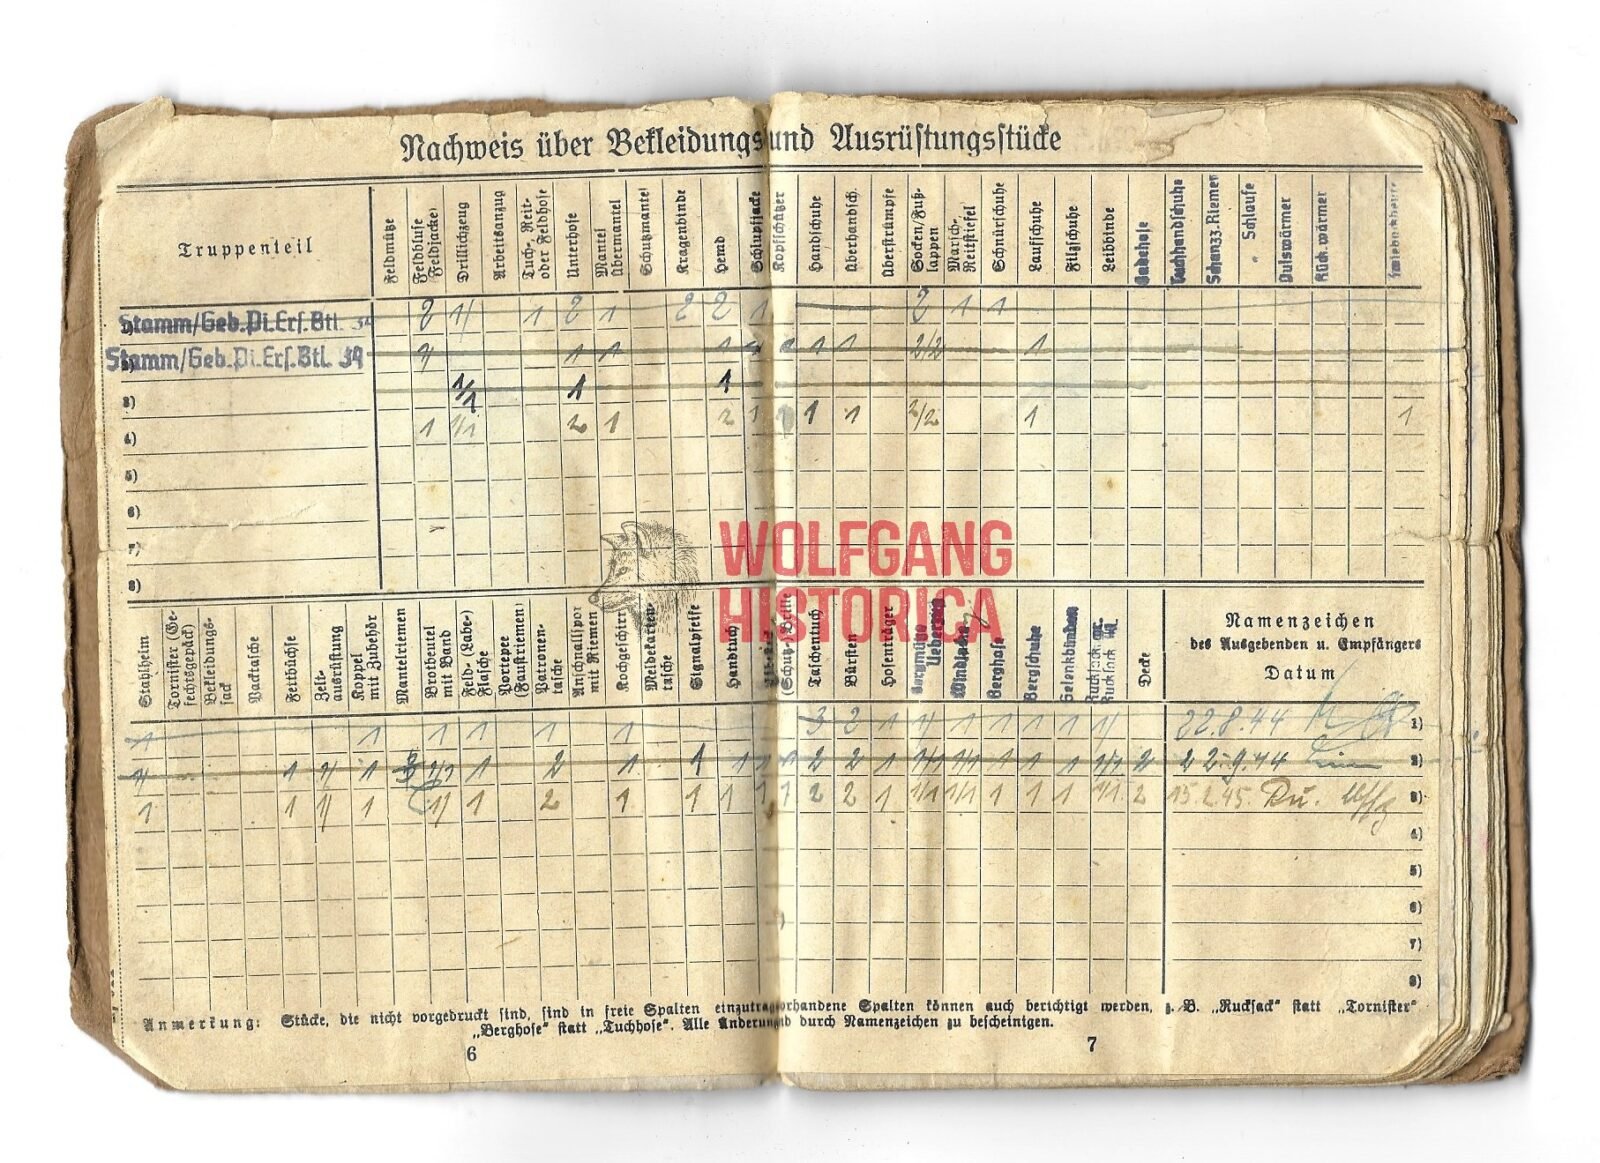 Nachweis über Bekleidungs- und Ausrüstungsstücke
Truppenteil
Feldmütze
Feldbluse
Feldjacke)
Drillichzeug
Arbeitsanzug
Tuch- Reit-
oder Feldhose
Unterhose
Mantel
Übermantel
Schutzmantel
Kragenbinde
Hemd
Schlupfjacke
Kopfschützer
Handschuhe
Überhandsch.
Überstrümpfe
Socken/Fuß-
lappen
Marsch-
Reitstiefel
Schnürschuhe
Laufschuhe
Filzschuhe
Leibbinde
Badehose
Tuchhandschuhe
Schanzz-Riemen
" Schlaufe
Pulswärmer
Rück.wärmer
1) Stamm/Geb.Pi.Ers.Btl. 54 2 1/ 1 2 1 2 2 1 2 1 1
2) Stamm/Geb.Pi.Ers.Btl. 54 1 1 1 1 1 1 2/2 1
3) 1/1 1 1
4) 1 1/1 2 1 2 1 1 1 2/2 1 1
5)
6)
7)
8)
WOLFGANG
HISTORICA
Stahlheim
Tornister (Ge-
fechtsgepäck)
Bekleidungs-
sack
Packtasche
Fettbüchse
Zelt-
ausrüstung
Koppel
mit Zubehör
Mantelriemen
Brotbeutel
mit Band
Feld- (Labe-)
Flasche
Portepee
(Faustriemen)
Patronen-
tasche
Anschnallspor
mit Riemen
Kochgeschirr
Meldekarten-
tasche
Signalpfeife
Handtuch
(Schutz-Brille
Taschentuch
Bürsten
Hosenträger
Bergmütze
Ueberzug
Windjacke
Berghose
Bergschuhe
Gelenkbinden
Rucksack gr.
Rucksack kl.
Decke
Namenzeichen
des Ausgebenden u. Empfängers
Datum
1 1 1 1 1 1 3 2 1 1/ 1 1 1 1 1/ 22.8.44 1)
1 1 1 1 2 1 1 1 2 2 1 1/1 1/1 1 1 1 1/1 2 22.9.44 2)
1 1 1/ 1 1/ 1 2 1 1 1 1 1 2 2 1 1/1 1/1 1 1 1 1/1 2 15.2.45. 3)
4)
5)
6)
7)
8)
Anmerkung: Stücke, die nicht vorgedruckt sind, sind in freie Spalten einzutrag orhandene Spalten können auch berichtigt werden, z. B. „Rucksack" statt „Tornister"
„Berghose" statt „Tuchhose". Alle Änderun d durch Namenzeichen zu bescheinigen.
6
7